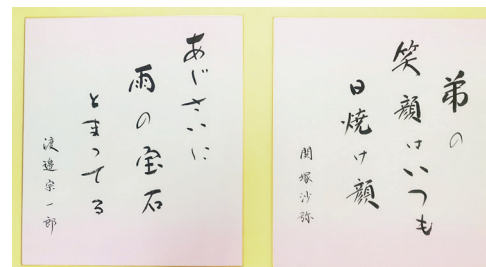 弟の
笑顔はいつも
日焼け顔
関塚沙弥
あじさいに
雨の宝石
とまってる
渡邉宗一郎